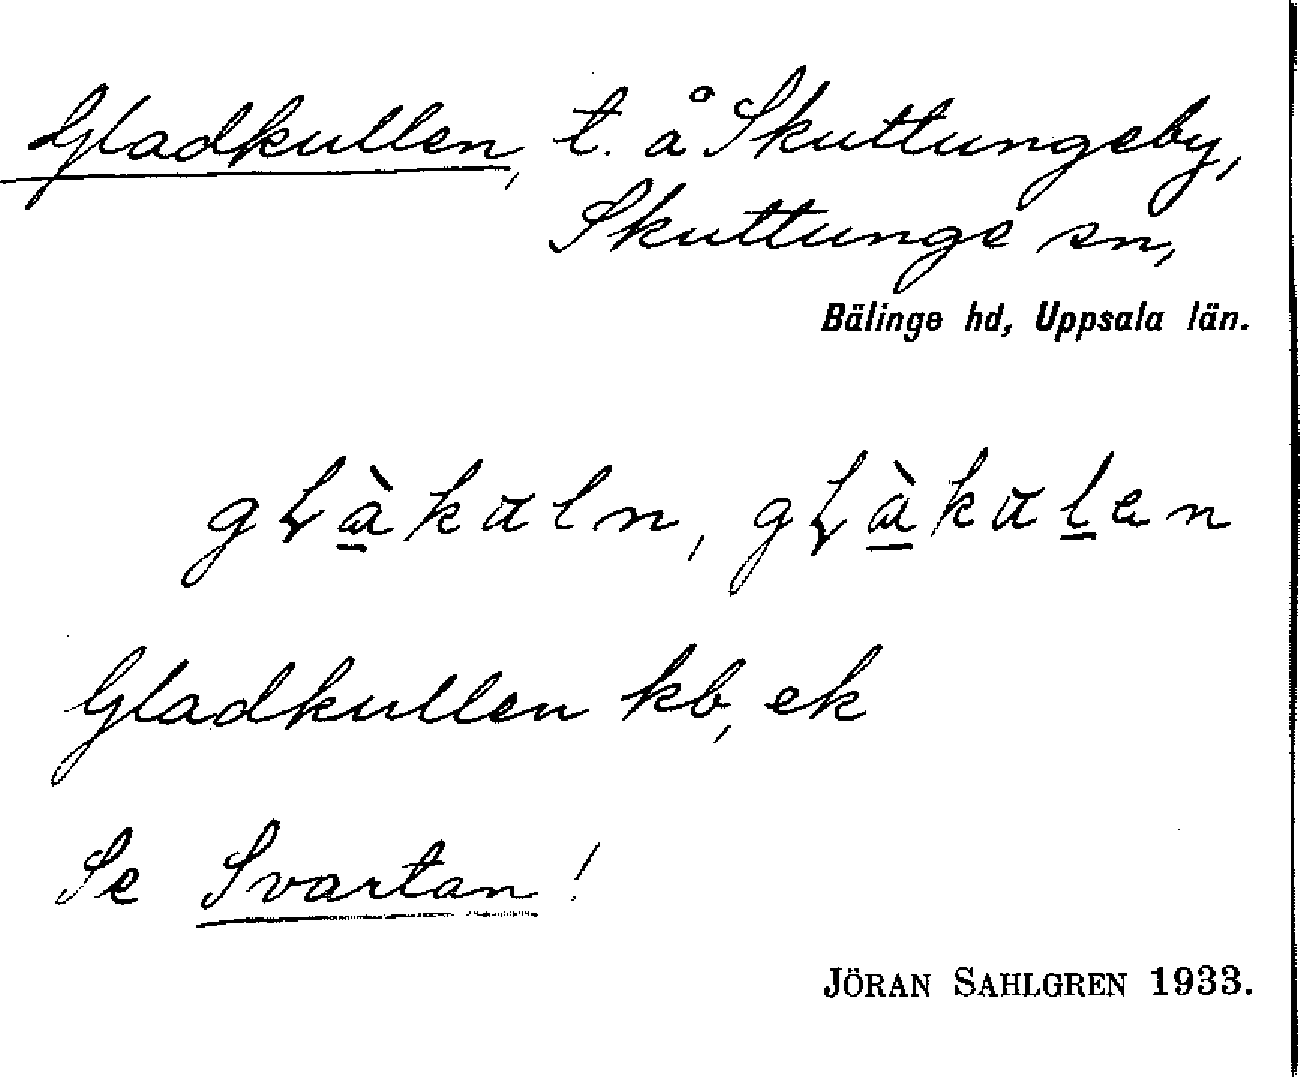 Gladkullen, t. å Skuttungeby,
Skuttunge sn,
Bälinge hd, Uppsala län.
Gladkullen kb, ek
Se Svartan!
JÖRAN SAHLGREN 1933.